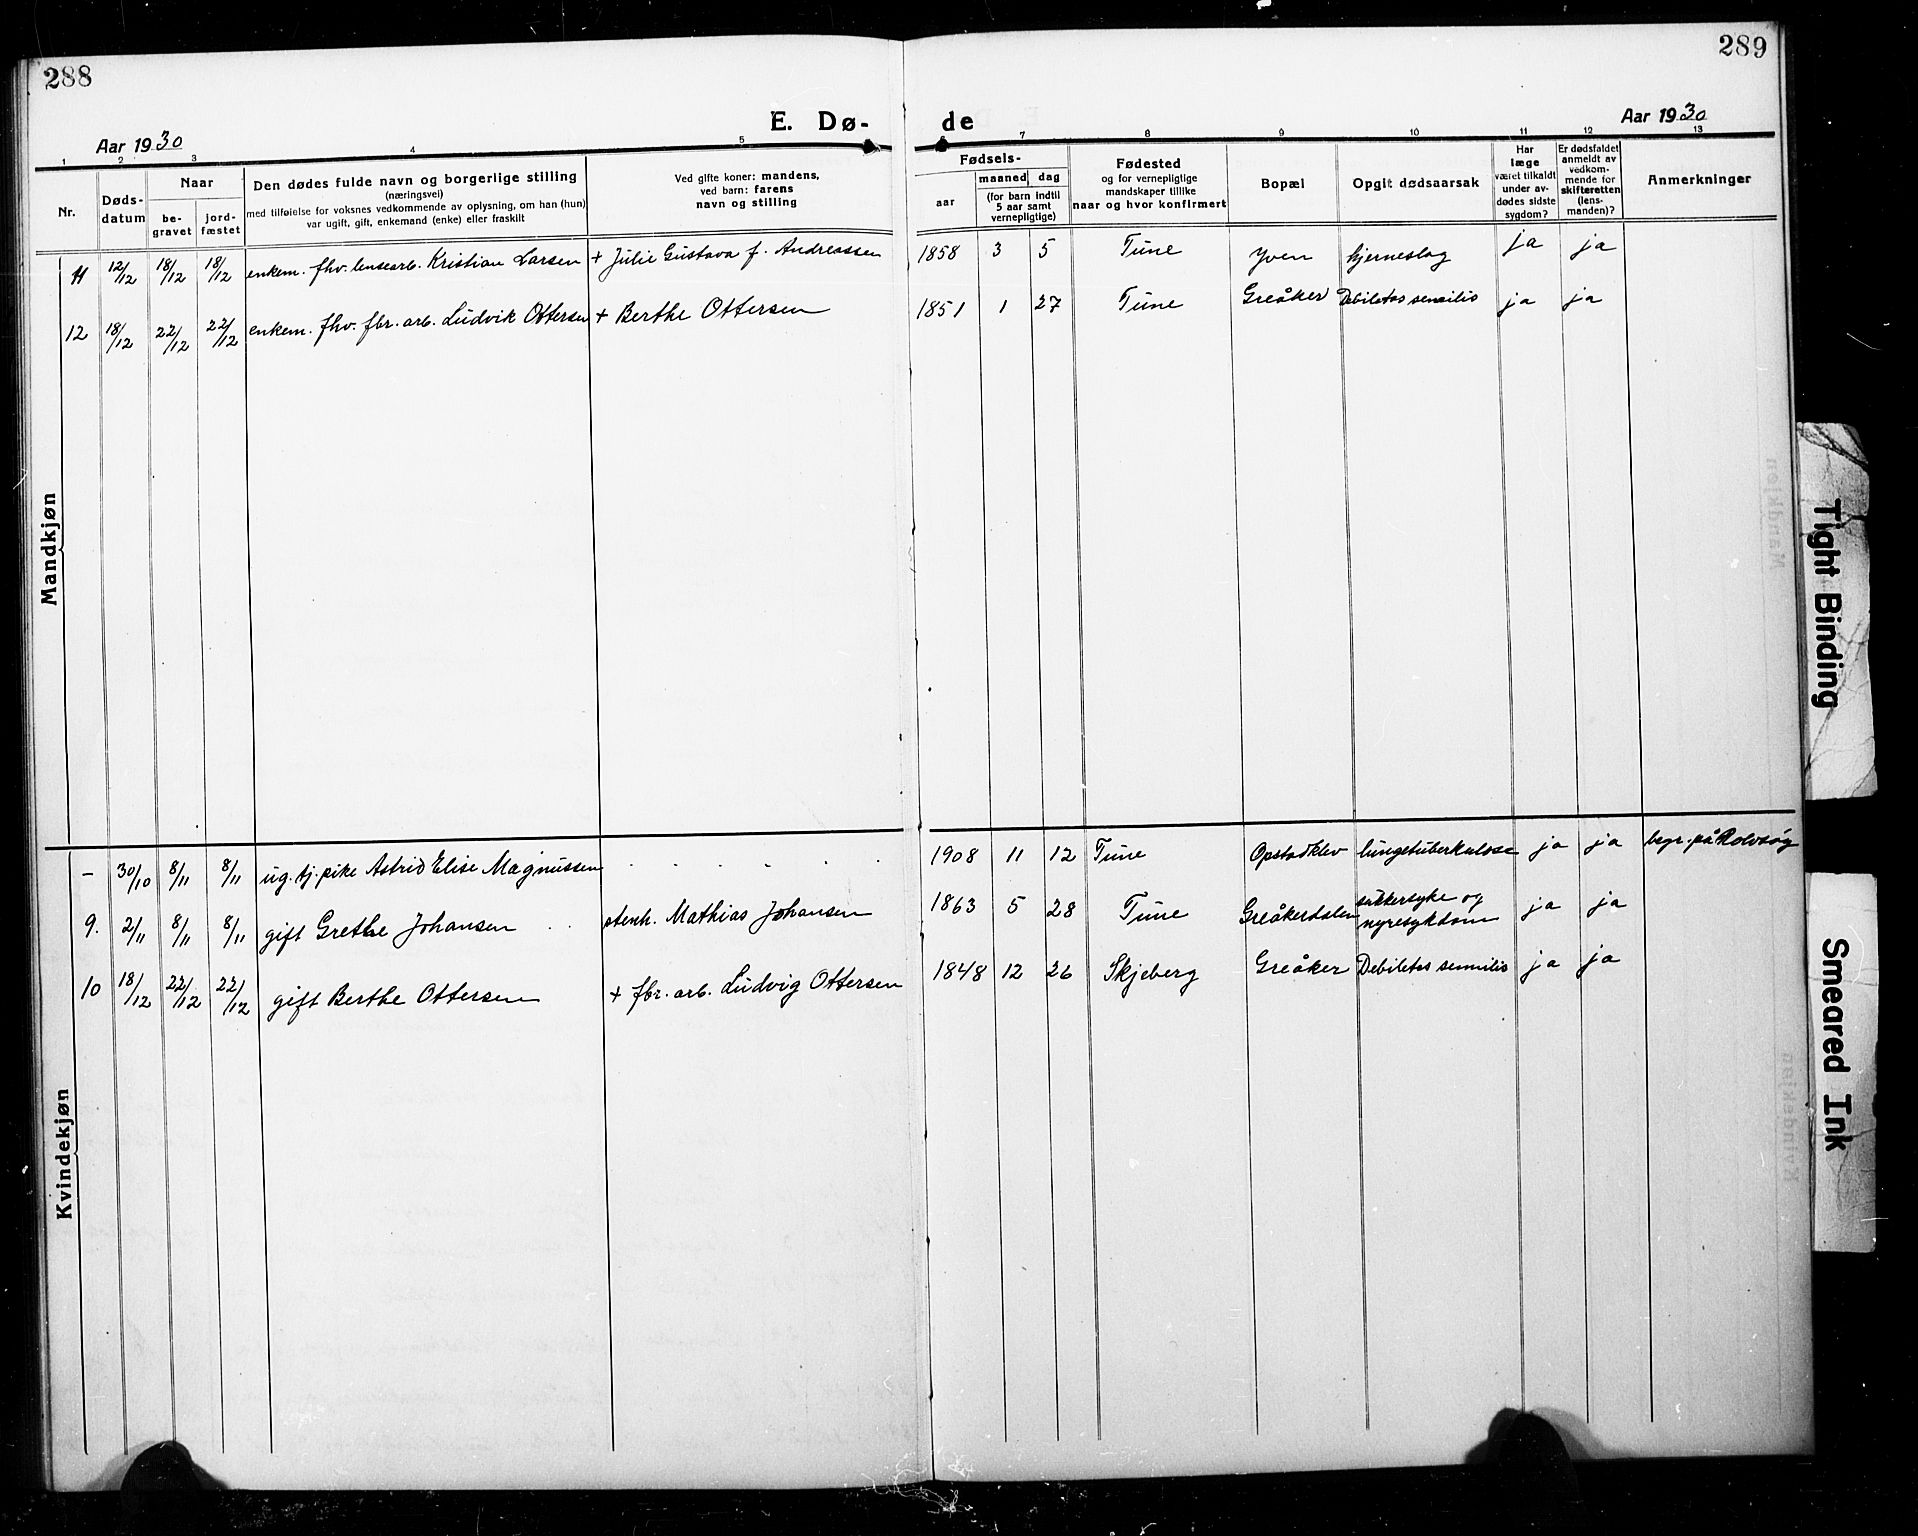 288
289
E. Dø-
de
Aar 1930
Aar 1930
1 2 3 4 5 6 7 8 9 10 11 12 13
Nr.
Døds-
datum
Naar
be-
gravet
jord-
fæstet
Den dødes fulde navn og borgerlige stilling
(næringsvei)
med tilføielse for voksnes vedkommende av oplysning, om han (hun)
var ugift, gift, enkemand (enke) eller fraskilt
Ved gifte koner: mandens,
ved barn: farens
navn og stilling
Fødsels-
aar
maaned
dag
(for barn indtil
5 aar samt
vernepligtige)
Fødested
og for vernepligtige
mandskaper tillike
naar og hvor konfirmert
Bopæl
Opgit dødsaarsak
Har
læge
været tilkaldt
under av-
dødes sidste
sygdom?
Er dødsfaldet
anmeldt av
vedkom-
mende for
skifteretten
(lens-
manden)?
Anmerkninger
Mandkjøn
11 12/12 18/12 18/12 enkem. fhv. lensearb. Kristian Larsen + Julie Gustava f. Andreassen 1858 3 5 Tune Yven hjerneslag ja ja
12 18/12 22/12 22/12 enkem. fhv. fbr. arb. Ludvik Ottersen + Berthe Ottersen 1851 1 27 Tune Greåker Debilitas senilis ja ja
Kvindekjøn
- 30/10 8/11 8/11 ug. tj. pike Astrid Elise Magnussen . . . . . . 1908 11 12 Tune Opstadklev lungetuberkulose ja ja begr. på Rolvsøy
9. 2/11 8/11 8/11 gift Grethe Johansen . . stenh. Mathias Johansen 1863 5 28 Tune Greåkerdalen sukkersyke og
nyresykdom ja ja
10 18/12 22/12 22/12 gift Berthe Ottersen + fbr. arb. Ludvig Ottersen 1848 12 26 Skjeberg Greåker Debiletas sennilis ja ja
Tight Binding
Smeared Ink